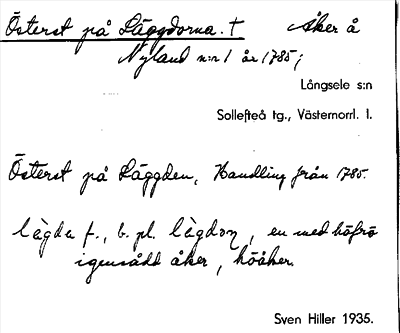 Österst på Läggdorna. † Åker å
Nyland n:r 1 år 1785;
Långsele s:n
Sollefteå tg., Västernorrl. l.
Österst på Läggden, Handling från 1785.
lägda f., b. pl. lägdoṇ, en med höfrö
igensådd åker, höåker.
Sven Hiller 1935.